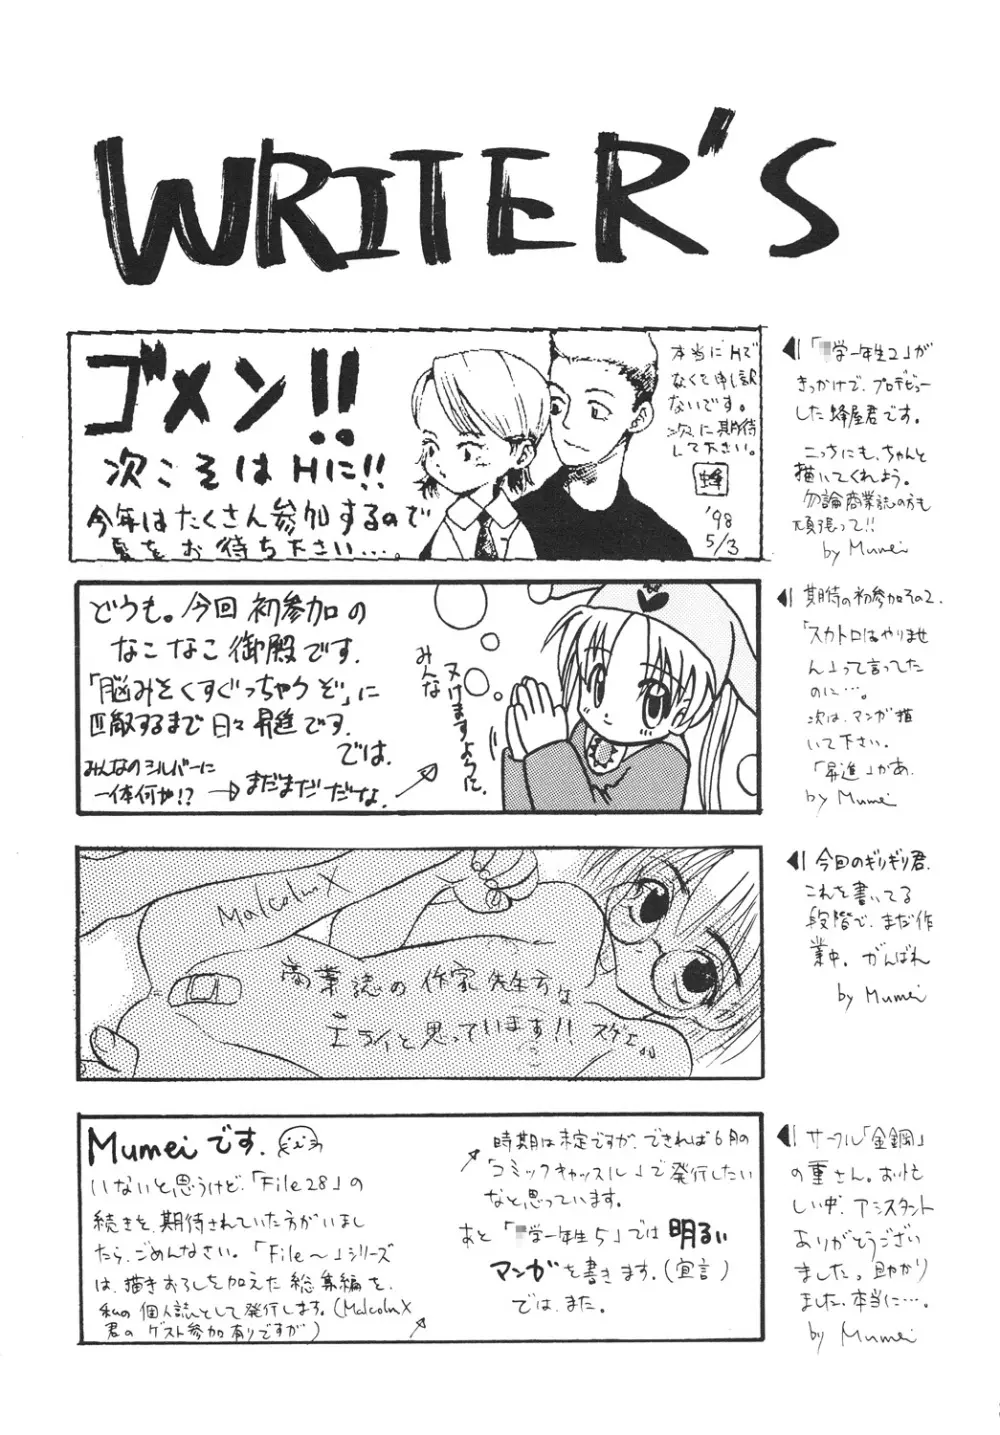 WRITER'S
ゴメン!!
次こそはHに!!
今年はたくさん参加するので
夏をお待ち下さい…。
本当にHで
なくて申し訳
ないです。
次に期待
して下さい。
蜂
'98
5/3
「学一年生2」が
きっかけで、プロデビュー
した蜂屋君です。
こっちにも、ちゃんと
描いてくれよう。
勿論商業誌の方も
頑張って!!
by Mumei
どうも。今回初参加の
なこなこ御殿です。
「脳みそくすぐっちゃうぞ」に
匹敵するまで日々昇進です。
では。
みんなのシルバーに
一体何が!?
→まだまだだな。
みんな
ヌけますように。
期待の初参加その2.
「スカトロはやりませ
ん」って言ってした
のに…。
次は、マンガ描
いて下さい。
「昇進」かあ.
by Mumei
Malcolm X
商業誌の作家先生方な
エライと思っています!! スゲェ。。
今回のギリギリ君.
これを書いてる
段階で、まだ作
業中。がんばれ
by Mumei
Mumeiです.
いないと思うけど、「File28」の
続きを、期待されていた方がいまし
たら、ごめんなさい。「File〜」シリーズ
は、描きおろしを加えた総集編を、
私の個人誌として発行します。(Malcolm X
君のゲスト参加有りですが)
時期は未定ですが、できれば6月の
「コミックキャッスル」で発行したい
なと思っています。
あと「学一年生5」では明るい
マンガを書きます。(宣言)
では、また。
サークル「金鋼」
の重さん。お忙
しい中、アシスタント
ありがとうござい
ました。助かり
ました、本当に…。
by Mumei